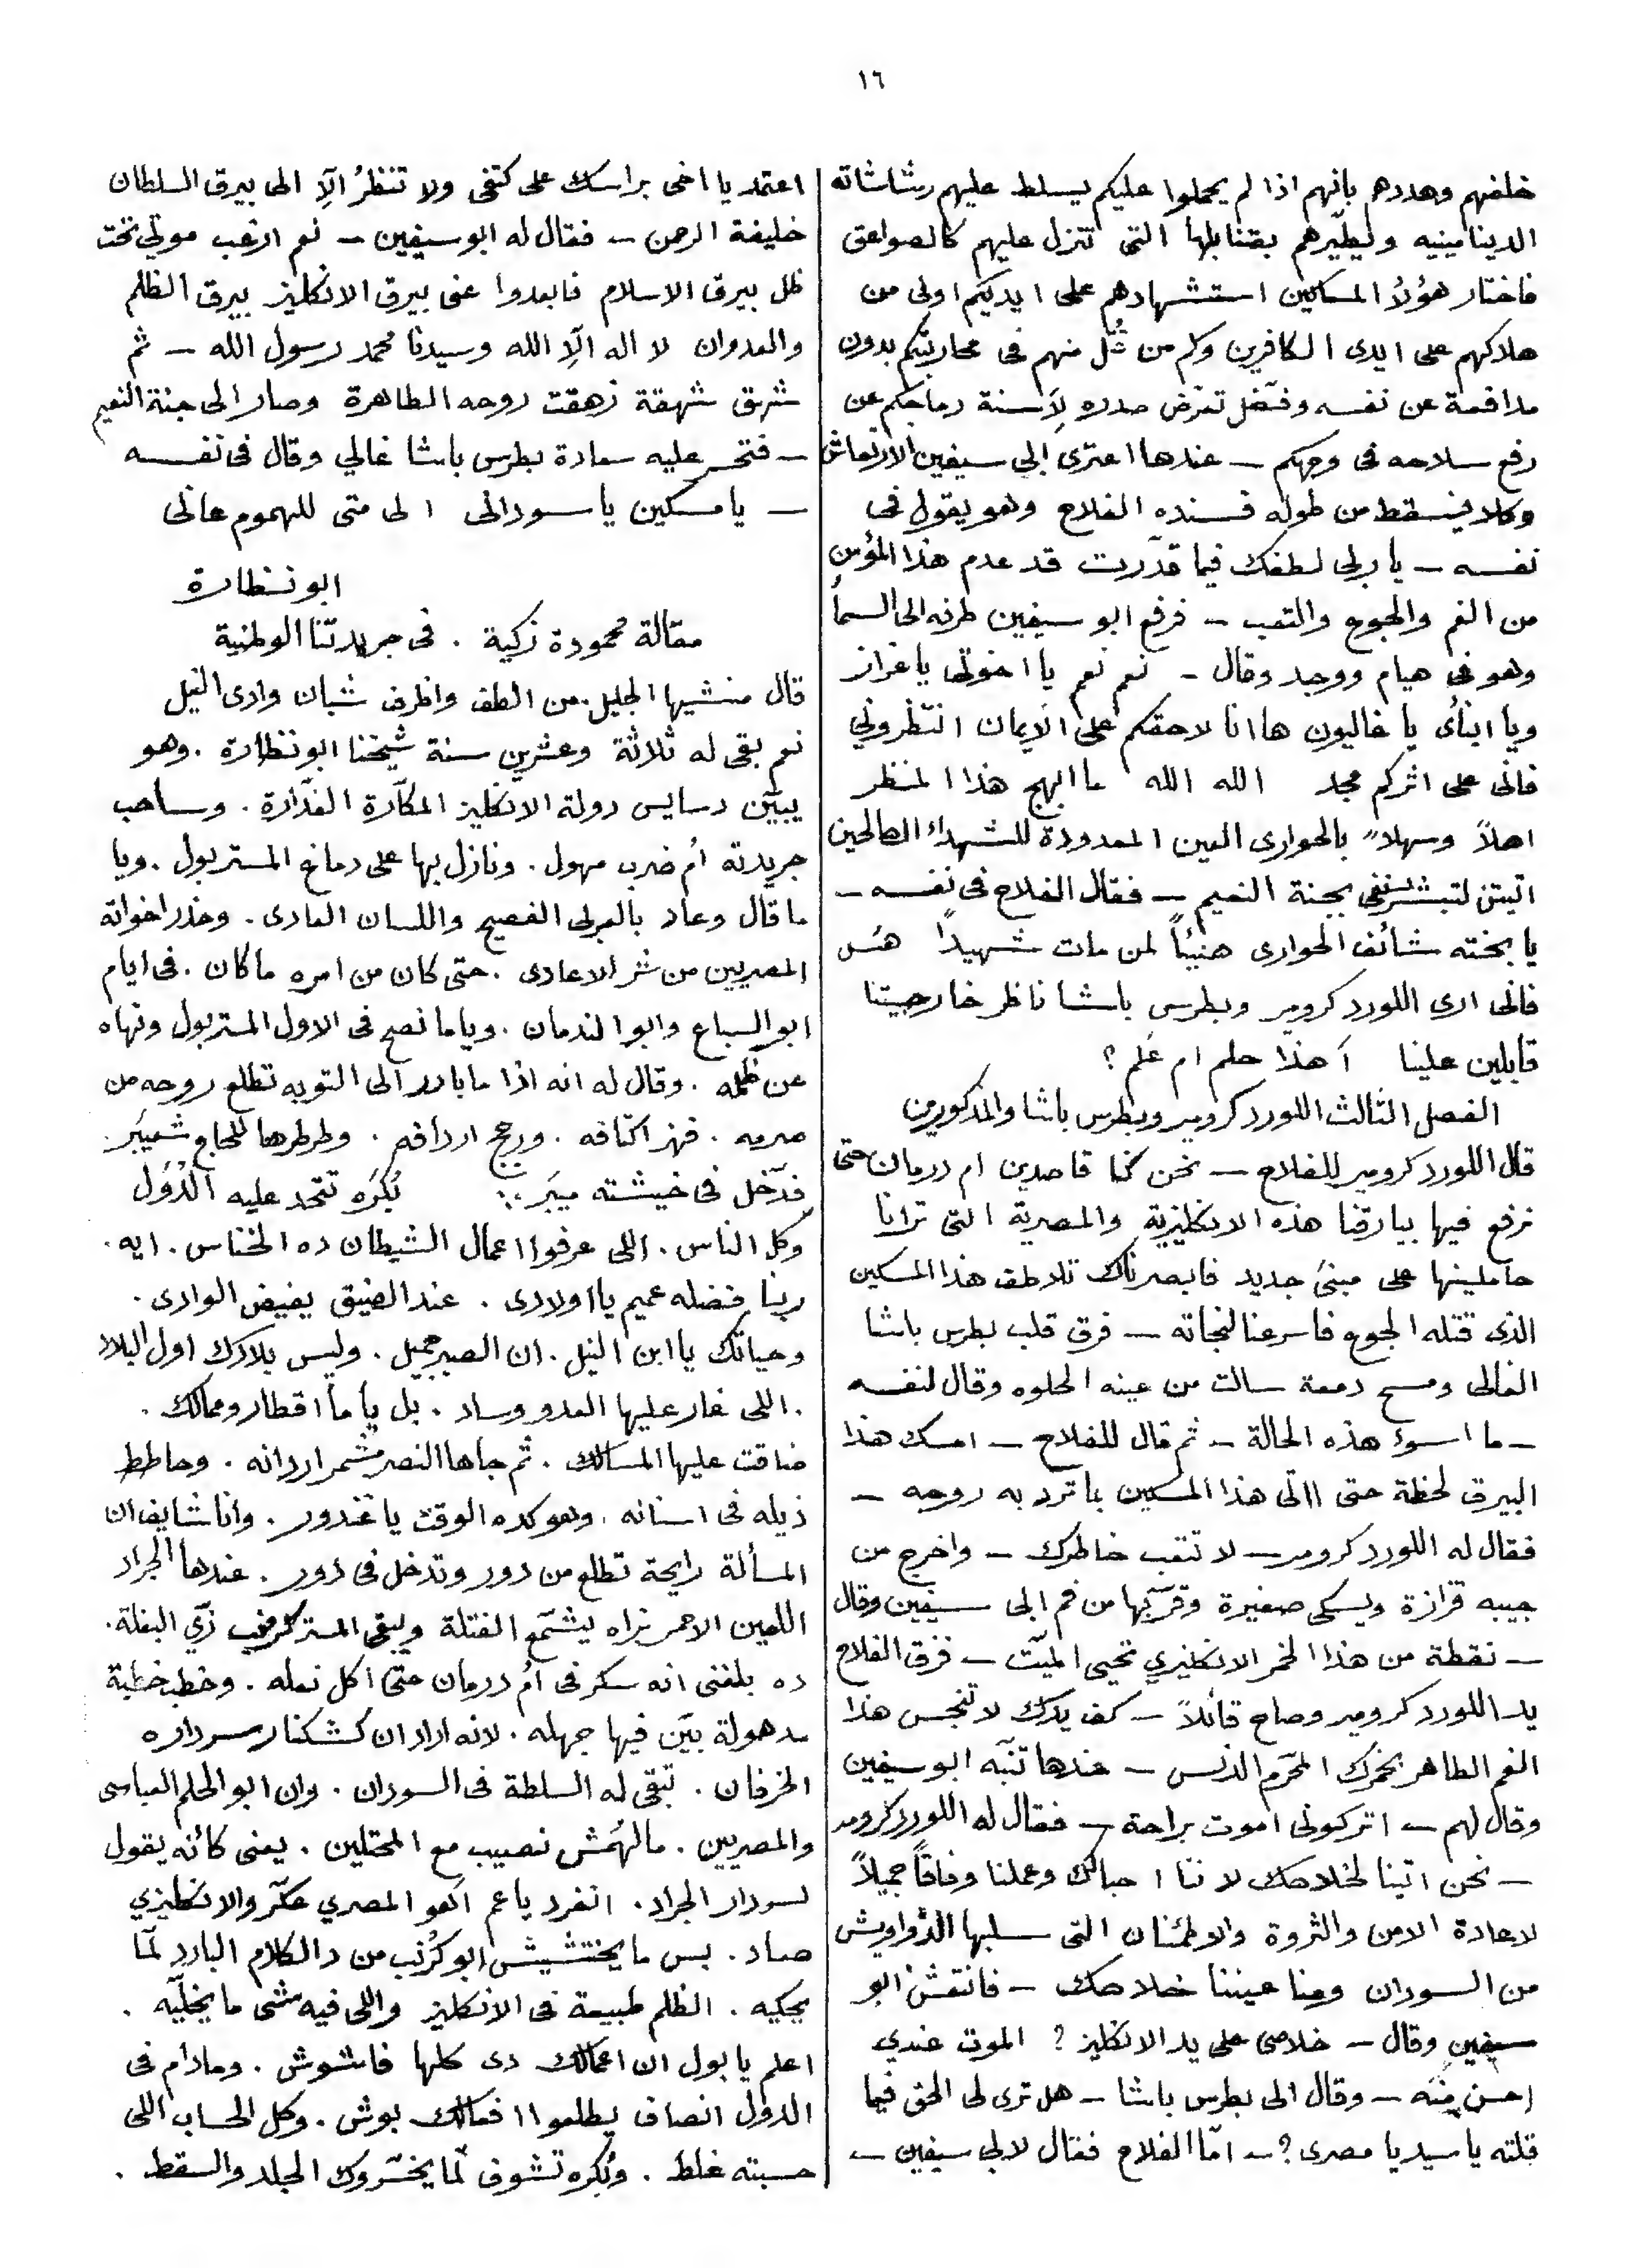 ١٦
خلفهم وهددهم بانهم اذا لم يحملوا عليكم يسلط عليهم رشاشاته
الديناميتيه وليطيّرهم بقنابلها التى تنزل عليهم كالصواعق
فاختار هؤلاُ المساكين استشهادهم على ايديكم اولى من
هلاكهم على ايدى الكافرين وكم من قُتل منهم فى محاربتكم بدون
مدافعة عن نفسه وفضّل تعرّض صدره لِأسنة رماحكم عن
رفع سلاحه فى وجهكم – عندها اعترى ابى سيفين الارتعاش
وكاد فيسقط من طوله فسنده الفلاح وهو يقول فى
نفسه – يا ربى لطفك فيما قدّرت قد عدم هذا المؤمن
من الغم والجوع والتعب – فرفع ابو سيفين طرفه الى السمأ
وهو فى هيام ووجد وقال – نعم نعم يا اخوتى يا عزاز
ويا ابنأى يا غاليون ها انا لاحقكم على الايمان انتظرونى
فانى على اثركم مجد الله الله ما ابهج هذا المنظر
اهلاً وسهلاً بالحوارى العين المعدودة للشهداء الصالحين
اتيتن لتبشرننى بجنة النعيم – فقال الفلاح فى نفسه –
يا بخته شائف الحوارى هنيئاً لمن مات شهيداً هُس
فانى ارى اللورد كرومر وبطرس باشا ناظر خارجيتنا
قابلين علينا أَهذا حلم ام عَلم ؟
الفصل الثالث اللورد كرومر وبطرس باشا والمذكورين
قال اللورد كرومر للفلاح – نحن كنا قاصدين ام درمان حتى
نرفع فيها بيارقنا هذه الانكليزية والمصرية التى ترانا
حاملينها على مبنىً جديد فابصرناك تلاطف هذا المسكين
الذى قتله الجوع فاسرعنا لنجاته – فرق قلب بطرس باشا
الغالى ومسح دمعة سالت من عينه الحلوه وقال لنفسه
– ما اسوءَ هذه الحالة – ثم قال للفلاح – امسك هذا
البيرق لحظة حتى ااتى هذا المسكين بما ترد به روحه –
فقال له اللورد كرومر – لا تتعب خاطرك – واخرج من
جيبه قزازة ويسكى صغيرة وقرّبها من فم ابى سيفين وقال
– نقطة من هذا الخمر الانكليزي تحيى الميّت – فزق الفلاح
يد اللورد كرومر وصاح قائلاً – كف يدك لا تنجس هذا
الفم الطاهر بخمرك المحرّم الدنس – عندها تنبّه ابو سيفين
وقال لهم – اتركونى اموت براحة – فقال له اللورد كرومر
– نحن اتينا لخلاصك لاننا احبائك وعملنا وفاقاً جميلاً
لاعادة الامن والثروة والاطمئنان التى سلبها الدّراويش
من السودان ومنا عيننا خلاصك – فانتفش ابو
سيفين وقال – خلاصى على يد الانكليز ؟ الموت عندي
احسن منه – وقال الى بطرس باشا – هل ترى لى الحق فيما
قلته يا سيد يا مصرى ؟ – امّا الفلاح فقال لابى سيفين –
اعتمد يا اخى براسك على كتفى ولا تنظرُ الّاِ الى بيرق السلطان
خليفة الرحمن – فقال له ابو سيفين – نعم ارغب موتي تحت
ظل بيرق الاسلام فابعدوا عنى بيرق الانكليز بيرق الظلم
والعدوان لا اله الّاِ الله وسيدنا محمد رسول الله – ثم
شهق شهقة زهقت روحه الطاهرة وصار الى جنة النعيم
– فتحسر عليه سعادة بطرس باشا غالي وقال فى نفسه
– يا مسكين يا سودانى الى متى للهموم عانى
ابو نظارة
مقالة محمودة زكية . فى جريدتنا الوطنية
قال منشيها الجليل . من الطف واظرف شبان وادى النيل
نعم بقى له ثلاثة وعشرين سنة شيخنا ابو نظارة . وهو
يبيّن دسايس دولة الانكليز المكّارة الغدّارة . وساحب
جريدته أُم ضرب مهول . ونازل بها على دماغ المستر بول . ويا
ما قال وعاد بالعربى الفصيح واللسان العادى . وحذر اخوانه
المصريين من شر الاعادى . حتى كان من امره ما كان . فى ايام
ابو السباع وابو الندمان . وياما نصح فى الاول المستر بول ونهاه
عن ظلمه . وقال له انه اذا ما بادر الى التوبه تطلع روحه من
صرمه . فهز اكتافه . ورجج اردافه . وطرطرها للحاج شمبيَر .
فدّخل فى خيشته ميبَر . بُكرَه تتحد عليه الدُوَل
وكل الناس . اللى عرفوا اعمال الشيطان ده الخناس . ايه .
ربنا فضله عميم يا اولادى . عند الضيق يفيض الوادى .
وحياتك يا ابن النيل . ان الصبر جميل . وليس بلادك اول البلاد
. اللى غار عليها العدو وساد . بل ياما اقطار وممالك .
ضاقت عليها المسالك . ثم جاها النصر مشمر اردانه . وحاطط
ذيله فى اسنانه . وهو كده الوقت يا غندور . وانا شايف ان
المسألة رايحة تطلع من دور وتدخل فى دور . عندها الجراد
اللعين الاحمر نراه يشمّع الفتلة ويبقى المستر كرمب زَي البغلة .
ده بلغنى انه سكر فى اُم درمان حتى اكل نعله . وخطب خطبة
مدهولة بيّن فيها جهله . لانه اراد ان كشكنار سرداره
الخرفان . تبقى له السلطة فى السودان . وان ابو الحلم العباسى
والمصريين . مالهُمش نصيب مع المحتلين . يعنى كأنه يقول
لسردار الجراد . انفرد يا عم اَهو المصري عكّر والانكليزي
صاد . بس ما يختشيش ابو كُرنب من دالكلام البارد لمّا
يحكيه . الظلم طبيعة فى الانكليز واللى فيه شى ما يخلّيه .
اعلم يا بول ان اعمالك دى كلها فاشوش . ومادام فى
الدول انصاف يطلعوا افعالك بوش . وكل الحساب اللى
حسبته غلط . وبُكره تشوف لمّا يخسّروك الجلد والسقط .